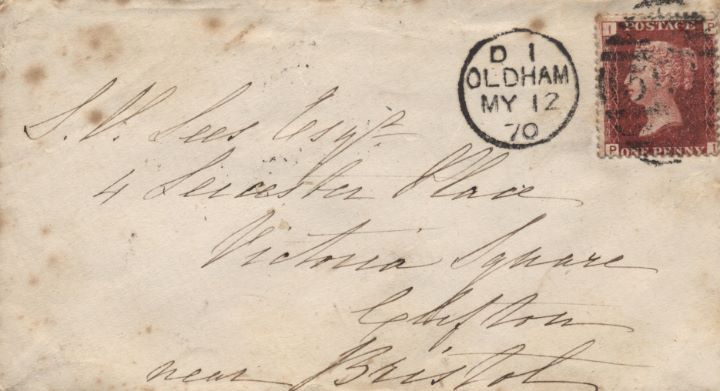 I P
POSTAGE
D 1
OLDHAM
MY 12
70
P I
ONE PENNY
S. V. Lees Esqr.
4 Leicester Place
Victoria Square
Clifton
near Bristol